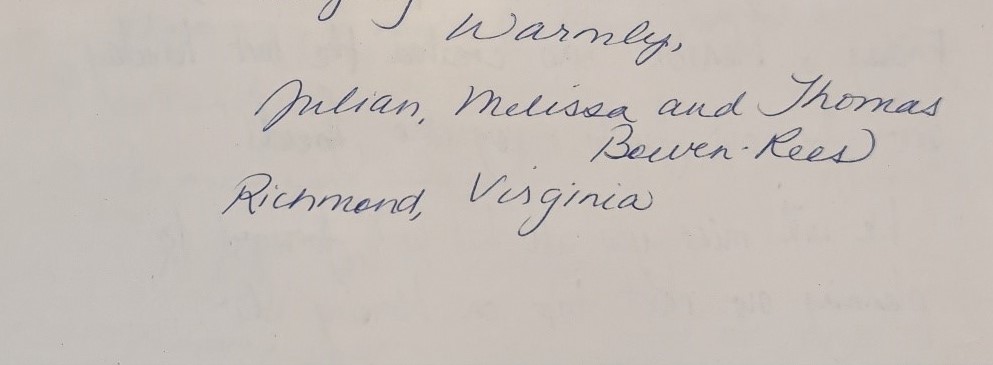 Warmly,
Julian, Melissa and Thomas
Bowen-Rees
Richmond, Virginia